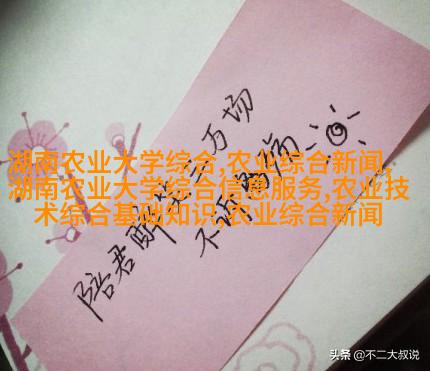 湖南农业大学综合,农业综合新闻,
湖南农业大学综合信息服务,农业技
术综合基础知识,农业综合新闻
陪君醉笑三万场
不诉离殇
头条 @不二大叔说